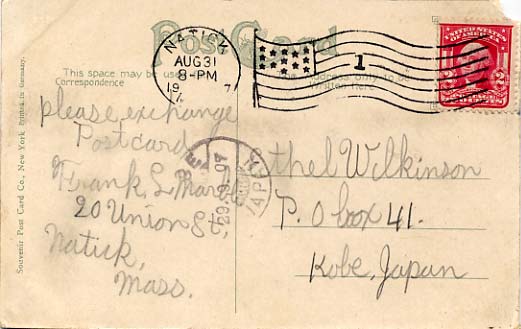 Post Card
NATICK
AUG 31
8-PM
1907
1
UNITED STATES OF AMERICA
This space may be used
Correspondence
Address only to be
Written here
please exchange
Postcard
Frank L.
20 Union St
Natick,
Mass.
Ethel Wilkinson
P. O box 41.
Kobe, Japan
KOBE
29.9.07
JAPAN
Souvenir Post Card Co., New York Printed in Germany.